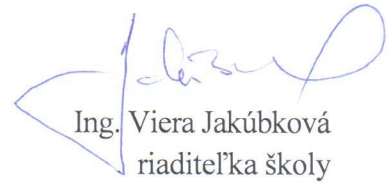 Ing. Viera Jakúbková
riaditeľka školy